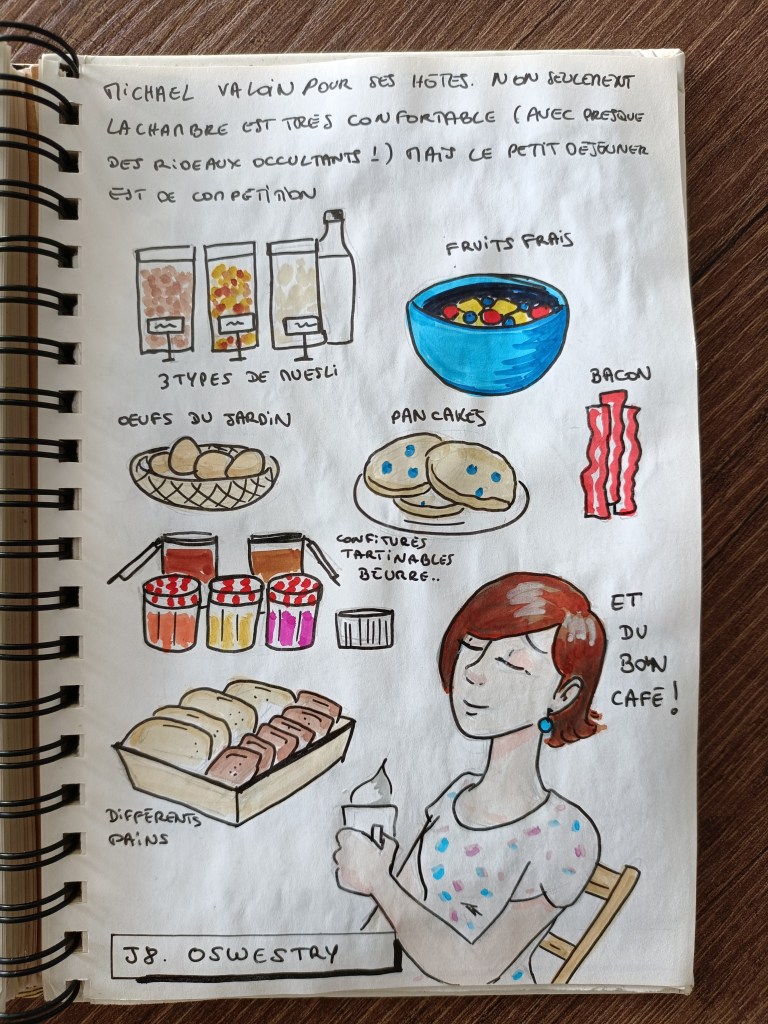 MICHAEL VALOIN POUR SES HÔTES. NON SEULEMENT
LA CHAMBRE EST TRÈS CONFORTABLE (AVEC PRESQUE
DES RIDEAUX OCCULTANTS !) MAIS LE PETIT DÉJEUNER
EST DE COMPÉTITION
FRUITS FRAIS
3 TYPES DE MUESLI
BACON
OEUFS DU JARDIN
PANCAKES
CONFITURES
TARTINABLES
BEURRE..
ET
DU
BON
CAFÉ !
DIFFÉRENTS
PAINS
J8. OSWESTRY